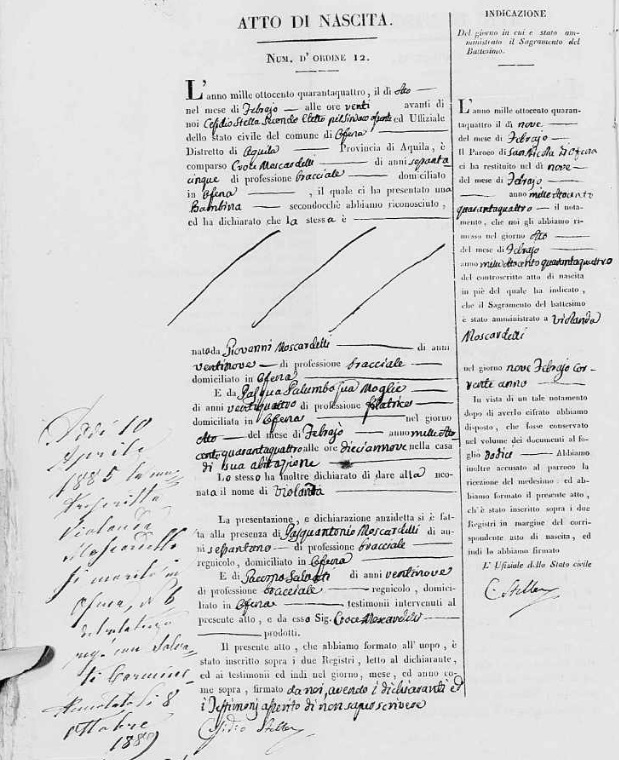 ATTO DI NASCITA.
NUM. D'ORDINE 12.
L'anno mille ottocento quarantaquattro, il dì otto
nel mese di Febrajo alle ore venti avanti di
noi Cesidio Stella Secondo Eletto pel Sindaco ed Uffiziale
dello stato civile del comune di Ofena
Distretto di Aquila Provincia di Aquila, è
comparso Moscardelli di anni sepanta
cinque di professione bracciale domiciliato
in Ofena , il quale ci ha presentato una
Bambina secondochè abbiamo riconosciuto,
ed ha dichiarato che la stessa è
nata da Giovanni Moscardelli di anni
ventinove di professione bracciale
domiciliato in Ofena
E da Pasqua Palumbo sua Moglie
di anni ventiquattro di professione filatrice
domiciliata in Ofena nel giorno
otto del mese di Febrajo anno mille otto
cento quarantaquattro alle ore dieciannove nella casa
di sua abitazione
Lo stesso ha inoltre dichiarato di dare alla neo-
nata il nome di Violanda
La presentazione, e dichiarazione anzidetta si è fat-
ta alla presenza di Pasquantonio Moscardelli di an-
ni sepantuno di professione bracciale
regnicolo, domiciliato in Ofena
E di Giacomo di anni ventinove
di professione bracciale regnicolo, domici-
liato in Ofena testimonii intervenuti al
presente atto, e da esso Sig. Croce
prodotti.
Il presente atto, che abbiamo formato all'uopo, è
stato inscritto sopra i due Registri, letto al dichiarante,
ed ai testimonii ed indi nel giorno, mese, ed anno co-
me sopra, firmato da noi, avendo i dichiaranti ed
i Testimonj asserito di non saper scrivere
Cesidio Stella
INDICAZIONE
Del giorno in cui e stato am-
ministrato il Sagramento del
Battesimo.
L'anno mille ottocento quaran-
taquattro il dì nove
del mese di Febrajo
Il Paroco di San Nicola di Ofena
ci ha restituito nel dì nove
del mese di Febrajo
anno mille ottocento
quarantaquattro il nota-
mento, che noi gli abbiamo ri-
messo nel giorno otto
del mese di Febrajo
anno mille ottocento quarantaquattro
del controscritto atto di nascita
in piè del quale ha indicato,
che il Sagramento del battesimo
è stato amministrato a Violanda
Moscardelli
nel giorno nove Febrajo cor-
rente anno
In vista di un tale notamento
dopo di averlo cifrato abbiamo
disposto, che fosse conservato
nel volume dei documenti al fo-
glio Dodici Abbiamo
inoltre accusato al parroco la
ricezione del medesimo: ed ab-
biamo formato il presente atto,
ch'è stato inscritto sopra i due
Registri in margine del corri-
spondente atto di nascita, ed
indi lo abbiamo firmato
L'Uffiziale dello Stato civile
C. Stella
Addì 10
Aprile
1885 la
Violanda
Moscardelli
si maritò in
Ofena,
con Salva-
ti Carmine
Annotato li 8
Ottobre
1889